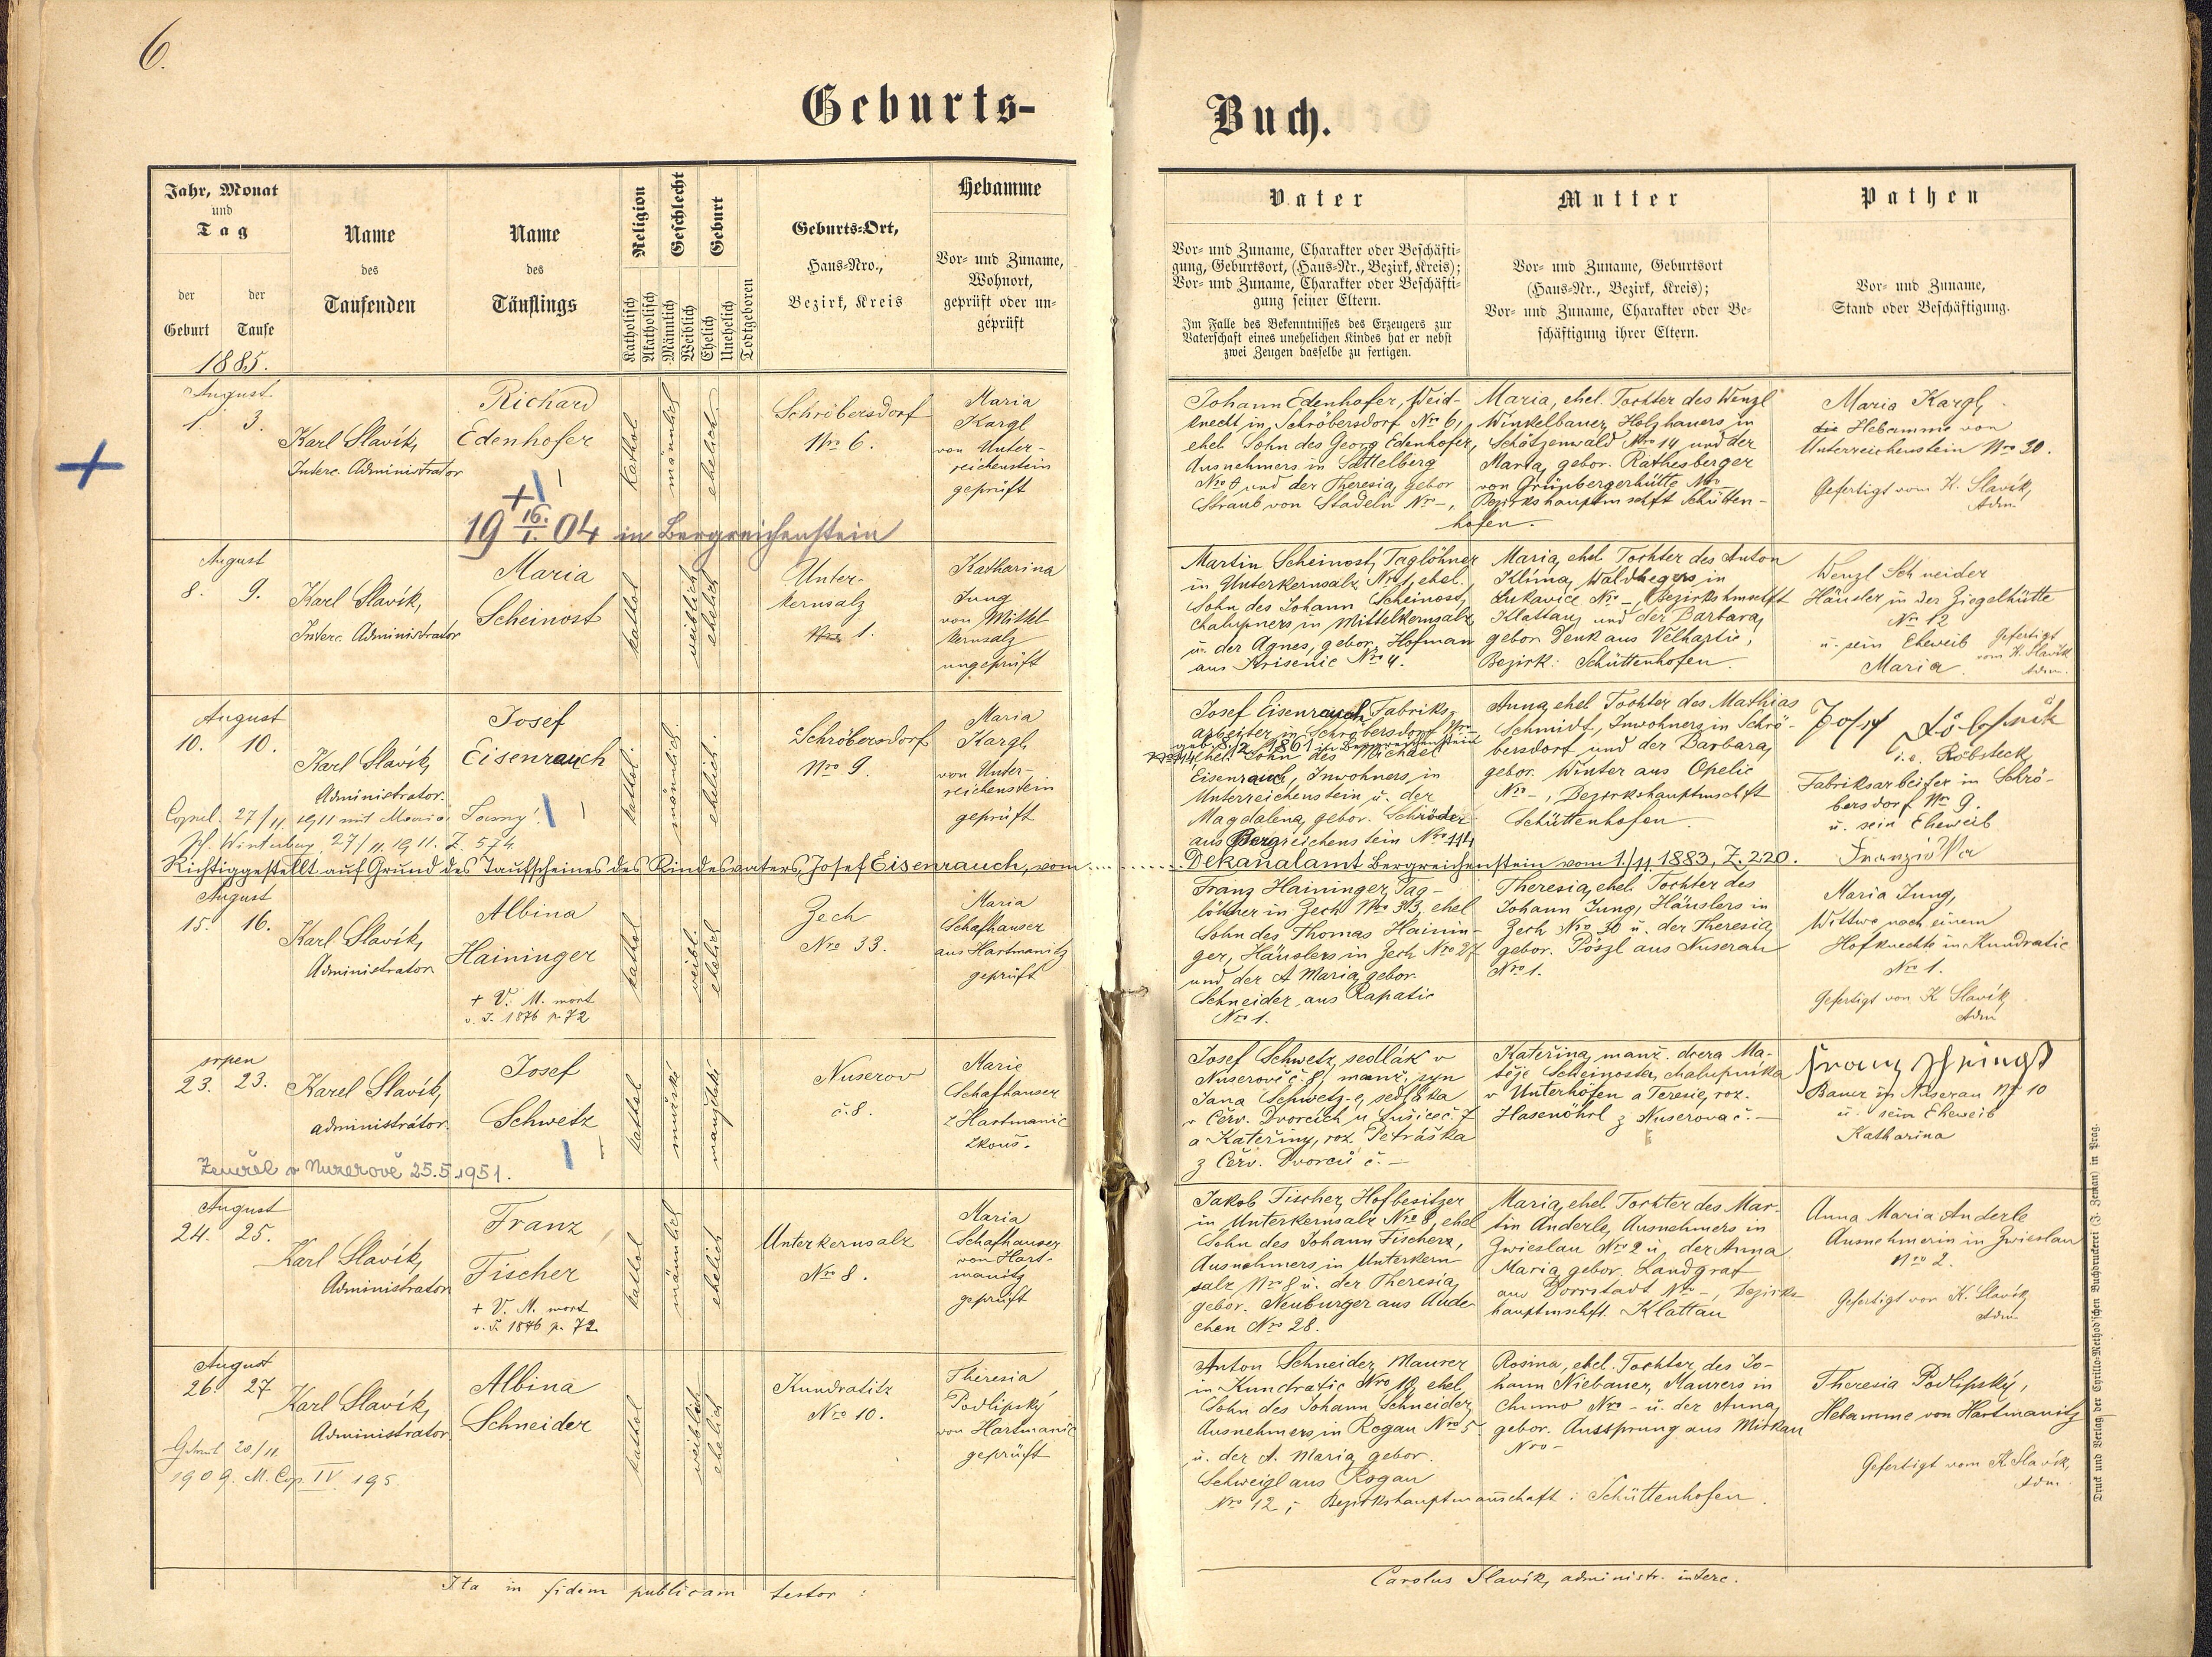 6.
Geburts-
Buch.
Jahr, Monat
und
Tag
der
Geburt
der
Taufe
1885.
Name
des
Taufenden
Name
des
Täuflings
Religion
Katholisch
Akatholisch
Geschlecht
Männlich
Weiblich
Geburt
Ehelich
Unehelich
Todtgeboren
Geburts-Ort,
Haus-Nro.,
Bezirk, Kreis
Hebamme
Vor- und Zuname,
Wohnort,
geprüft oder un-
geprüft
Vater
Vor- und Zuname, Charakter oder Beschäfti-
gung, Geburtsort, (Haus-Nr., Bezirk, Kreis);
Vor- und Zuname, Charakter oder Beschäfti-
gung seiner Eltern.
Im Falle des Bekenntnisses des Erzeugers zur
Vaterschaft eines unehelichen Kindes hat er nebst
zwei Zeugen dasselbe zu fertigen.
Mutter
Vor- und Zuname, Geburtsort
(Haus-Nr., Bezirk, Kreis);
Vor- und Zuname, Charakter oder Be-
schäftigung ihrer Eltern.
Pathen
Vor- und Zuname,
Stand oder Beschäftigung.
August
1. 3.
Karl Slavík,
Interc. Administrator
Richard
Edenhofer
+
19 16./I. 04 in Bergreichenstein
kathol.
männlich
ehelich
Schröbersdorf
Nro 6.
Maria
Kargl
von Unter-
reichenstein
geprüft
Johann Edenhofer, Weid-
knecht in Schröbersdorf Nro 6,
ehel. Sohn des Georg Edenhofer,
Ausnehmers in Sattelberg
und der Theresia, gebor
Straub von Stadeln Nro -,
Maria, ehel. Tochter des Wenzl
Winkelbauer, Holzhauers in
Schätzenwald Nro 14 und der
Maria, gebor. Rathesberger
von Grünbergerhütte Nro -
Bezirkshauptmschft Schütten-
hofen.
Maria Kargl,
die Hebamme von
Unterreichenstein Nro 30.
Gefertigt vom K. Slavík,
Adm.
August
8. 9.
Karl Slavík,
Interc. Administrator
Maria
Scheinost
kathol.
weiblich
ehelich
Unter-
kernsalz
Nro 1.
Katharina
Jung
von Mittel
kernsalz
ungeprüft
Martin Scheinost, Taglöhner
in Unterkernsalz Nro 1, ehel.
Sohn des Johann Scheinost,
Chalupners in Mittelkernsalz
u. der Agnes, gebor. Hofman
aus Krisenic Nro 4.
Maria, ehel. Tochter des Anton
Klíma, Waldhegers in
Lukavice Nro -, Bezirkshmschft
Klattau, und der Barbara,
gebor. Denk aus Velhartic,
Bezirk: Schüttenhofen.
Wenzl Schneider
Häusler in der Ziegelhütte
Nro 12
u. sein Eheweib
Maria.
Gefertigt
vom K. Slavík
Adm.
August
10. 10.
Karl Slavík,
Administrator.
Josef
Eisenrauch
Copul. 27/11. 1911 mit Maria
Pf. Winterberg, 27/11. 1911. Z. 574.
kathol.
männlich.
ehelich.
Schröbersdorf
Nro 9.
Maria
Kargl,
von Unter-
reichenstein
geprüft
Josef Eisenrauch, Fabriks-
arbeiter in Schröbersdorf Nro -
1861 in Bergreichenstein
ehel. Sohn des Michael
Eisenrauch, Inwohners in
Unterreichenstein u. der
Magdalena, gebor. Schröder
aus Bergreichenstein Nro 114
Anna, ehel Tochter des Mathias
Schmidt, Inwohners in Schrö-
bersdorf und der Barbara,
gebor. Winter aus Opelic
Nro -, Bezirkshauptmschft
Schüttenhofen.
Josef
i.e. Röbsteck
Fabriksarbeiter in Schrö-
bersdorf Nro 9.
u. sein Eheweib
Franziska
Richtiggestellt auf Grund des Taufscheines des Kindesvaters, Josef Eisenrauch, vom ......... Dekanalamt Bergreichenstein vom 1./11. 1883, Z. 220.
August
15. 16.
Karl Slavík,
Administrator
Albina
Haininger
+ V. M. mort
v. J. 1876 p. 72
kathol.
weibl.
ehelich
Zech
Nro 33.
Maria
Schafhauser
aus Hartmanitz
geprüft
Franz Haininger, Tag-
löhner in Zech Nro 33, ehel
Sohn des Thomas Hainin-
ger, Häuslers in Zech Nro 27
und der A Maria, gebor.
Schneider, aus Rapatic
Nro 1.
Theresia, ehel. Tochter des
Johann Jung, Häuslers in
Zech Nro 30 u. der Theresia,
gebor. Pöszl aus Nuserau
Nro 1.
Maria Jung,
Wittwe nach einem
Hofknechte in Kundratic
Nro 1.
Gefertigt von K Slavík,
Adm
srpen
23. 23.
Karel Slavík,
administrátor.
Josef
Schwetz
Zemřel v Nuzerově 25.5.1951.
kathol.
mužské
manželské
Nuserov
č. 8.
Marie
Schafhauser
z Hartmanic
zkouš.
Josef Schwetz, sedlák v
Nuserově č. 8, manž. syn
Jana Schwetz-e, sedláka
v Červ. Dvorcích u Sušice č. 7
a Kateřiny, roz. Petráška
z Červ. Dvorců č. -
Kateřina, manž. dcera Ma-
těje Scheinosta, chalupníka
v Unterhöfen a Teresie, roz.
Hasenöhrl z Nuserova č. -
Franz
Bauer in Nuserau Nr 10
u. sein Eheweib
Katharina
August
24. 25.
Karl Slavík,
Administrator
Franz
Fischer
+ V. M. mort
v. J. 1876 p. 72.
kathol
männlich
ehelich
Unterkernsalz
Nro 8.
Maria
Schafhauser
von Hart-
manitz
geprüft
Jakob Fischer, Hofbesitzer
in Unterkernsalz Nro 8, ehel
Sohn des Johann Fischers,
Ausnehmers in Unterkern
salz Nro 8 u. der Theresia,
gebor. Neuburger aus Aude
chen Nro 28.
Maria, ehel. Tochter des Mar-
tin Anderle, Ausnehmers in
Zwieslau Nro 2 u. der Anna
Maria, gebor. Landgraf
aus Dorrstadt Nro -, Bezirks
hauptmschft. Klattau
Anna Maria Anderle
Ausnehmerin in Zwieslau
Nro 2.
Gefertigt von K. Slavík,
Adm.
August
26. 27
Karl Slavík,
Administrator.
Albina
Schneider
Getraut 20/11.
1909. M. Cop. IV. 195.
kathol
weiblich
ehelich
Kundratitz
Nro 10.
Theresia
Podlipský
von Hartmanic
geprüft
Anton Schneider, Maurer
in Kundratic Nro 10, ehel,
Sohn des Johann Schneider,
Ausnehmers in Rogau Nro 5
u. der A. Maria, gebor.
Schweigl aus Rogau
Nro 12; Bezirkshauptmannschaft: Schüttenhofen.
Rosina, ehel. Tochter des Jo-
hann Niebauer, Maurers in
Chumo Nro - u. der Anna,
gebor. Aussprung aus Mirkau
Nro -
Theresia Podlipský,
Hebamme von Hartmanitz
Gefertigt vom K Slavík,
Adm
Ita in fidem publicam testor:
Carolus Slavík, administr. interc.
Druck und Verlag der Cyrillo-Method'schen Buchdruckerei (J. Zeman) in Prag.